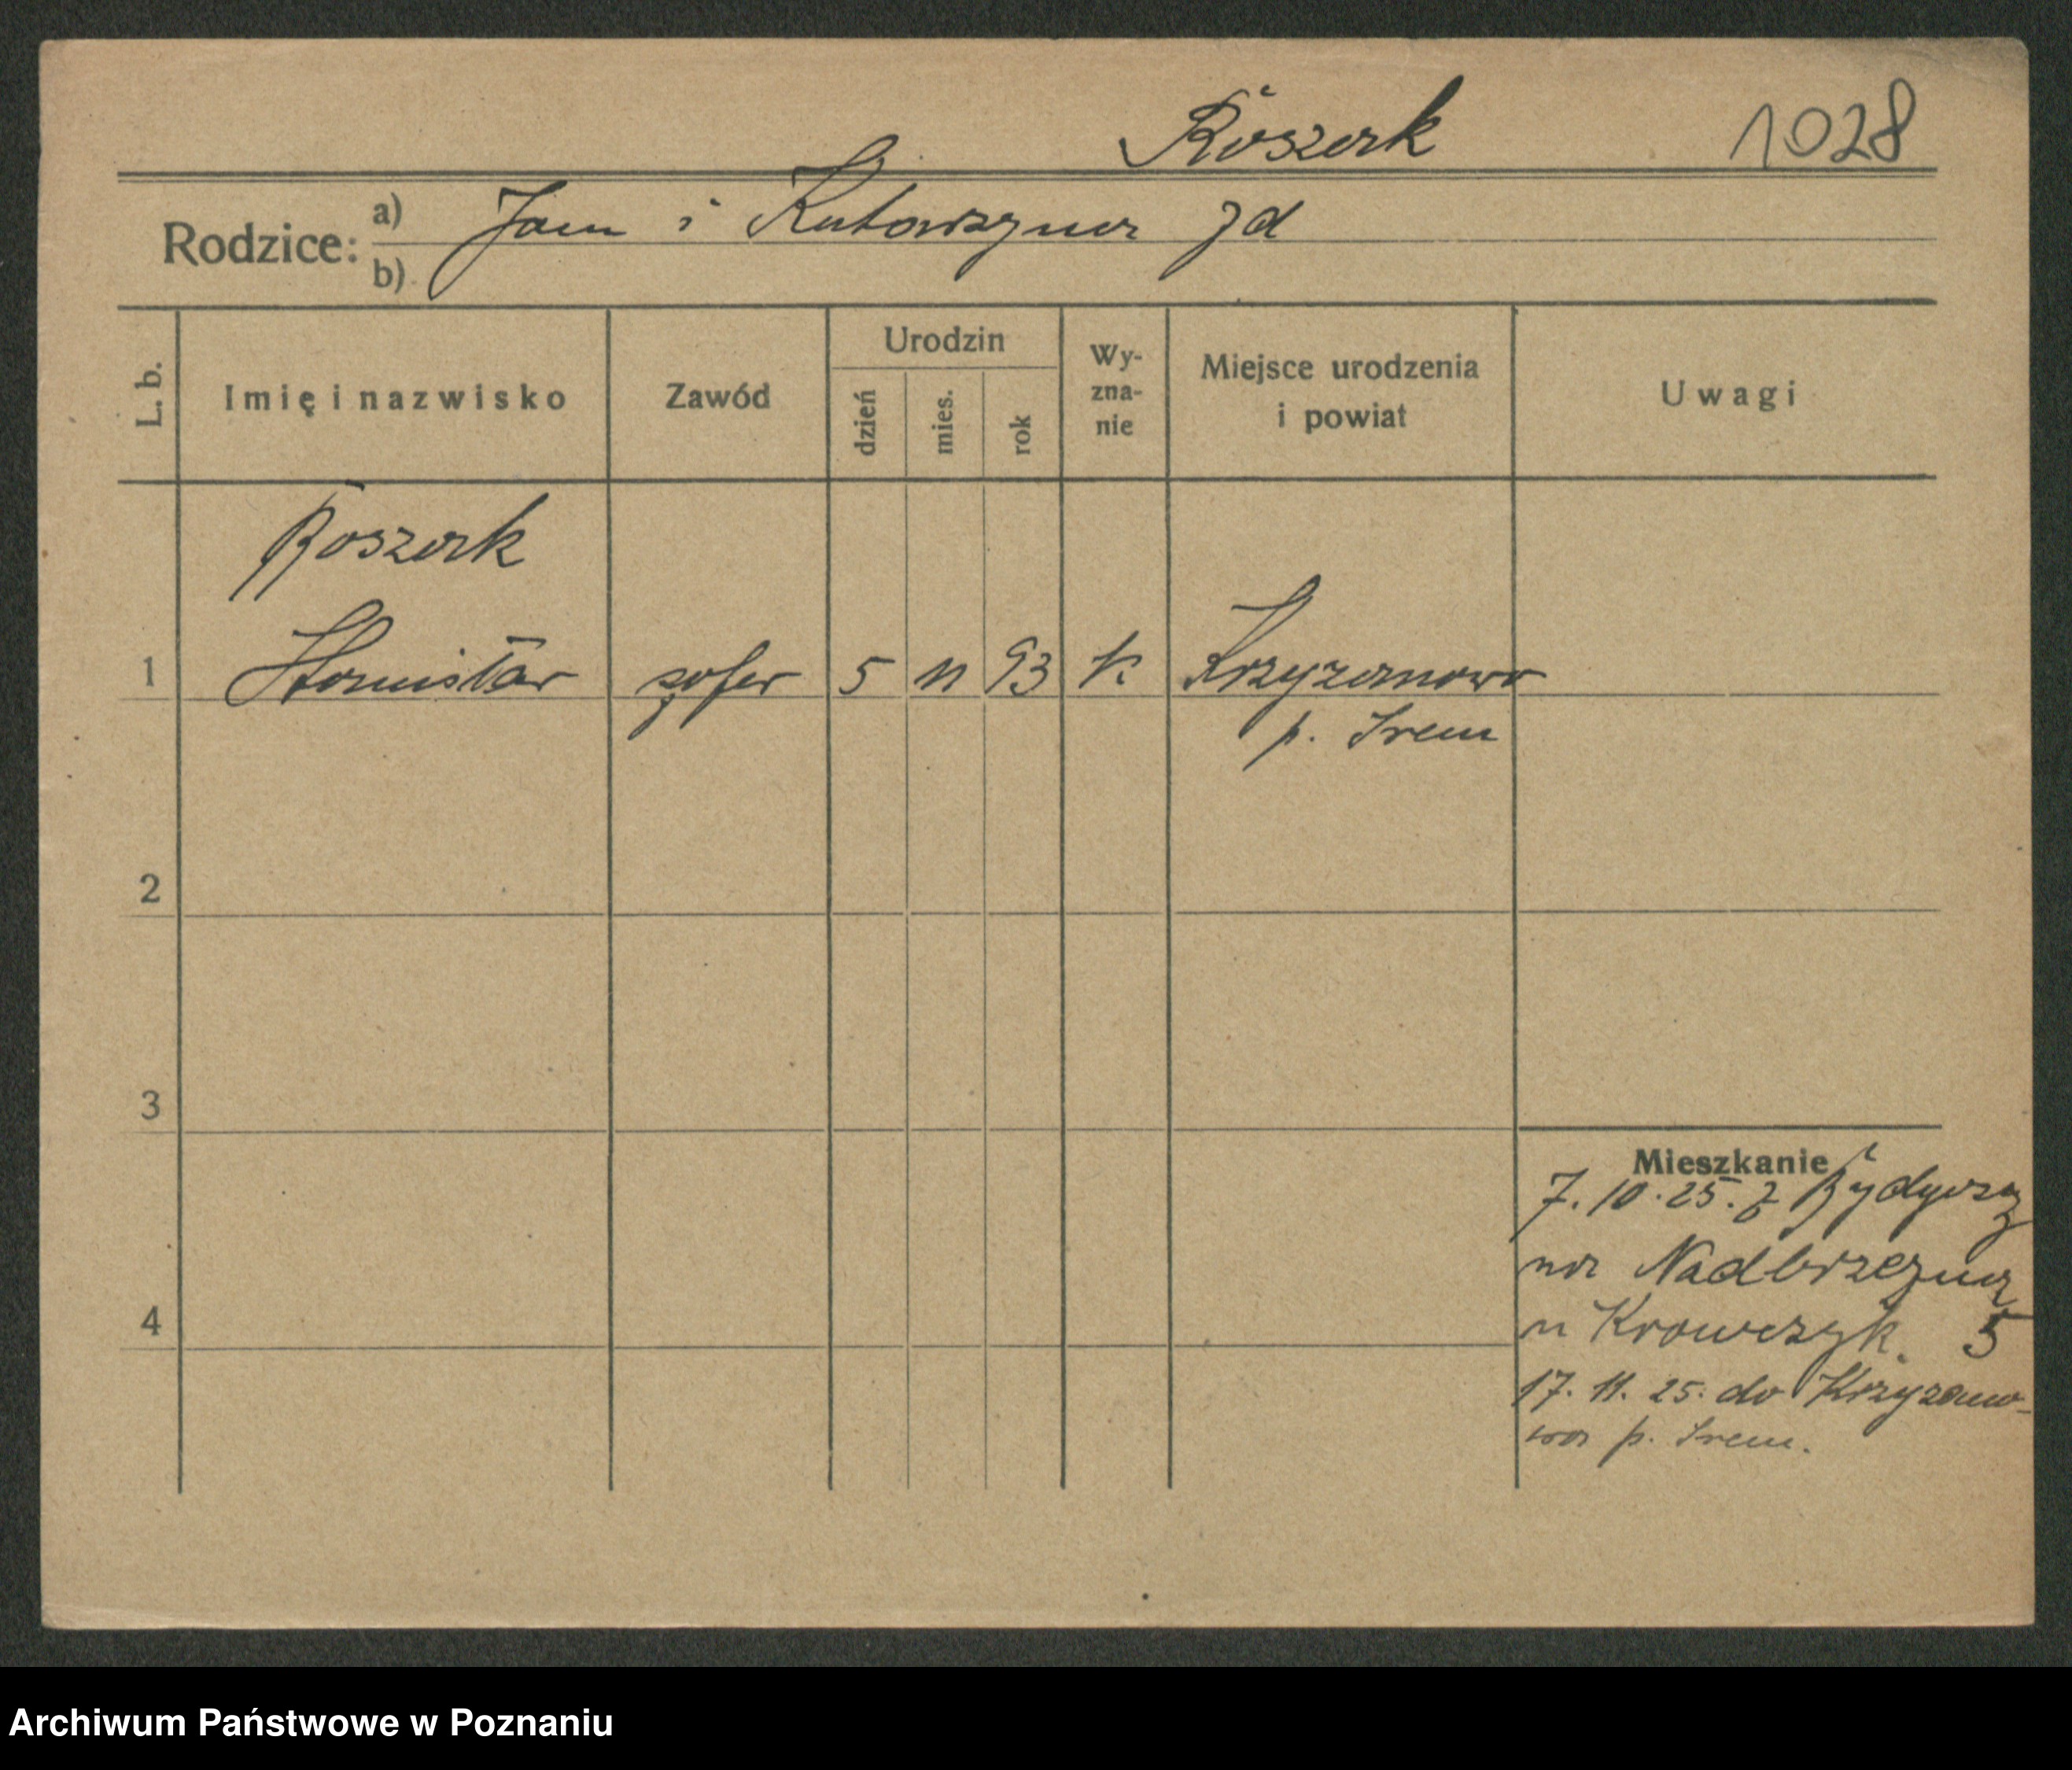 Roszak 1028
Rodzice: a) Jan i Katarzyna
b)
L. b. Imię i nazwisko Zawód Urodzin dzień mies. rok Wy-zna-nie Miejsce urodzenia i powiat Uwagi
Roszak
1 Stanisław szofer 5 11 93 k Krzyżanowo
p. Śrem
2
3
Mieszkanie
7. 10. 25. z Bydgoszcz
na Nadbrzeżna
4
u Krawczyk. 5
17. 11. 25. do Krzyżano-
wa p. Śrem.
Archiwum Państwowe w Poznaniu